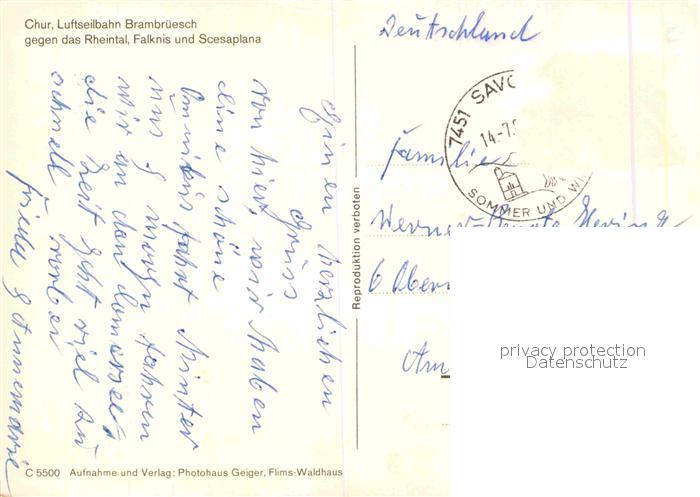 Chur, Luftseilbahn Brambrüesch
gegen das Rheintal, Falknis und Scesaplana
Einen herzlichen
Gruss
von hier, wir haben
eine schöne
Omnibus fahrt hinter
uns
wir an den
die Zeit geht viel zu
schnell vorbei
Annemarie
C 5500 Aufnahme und Verlag: Photohaus Geiger, Flims-Waldhaus
Reproduktion verboten
Deutschland
7451 SAVO
14.-7.
SOMMER UND WI
Familie
Werner
6 Ober
Am
privacy protection
Datenschutz